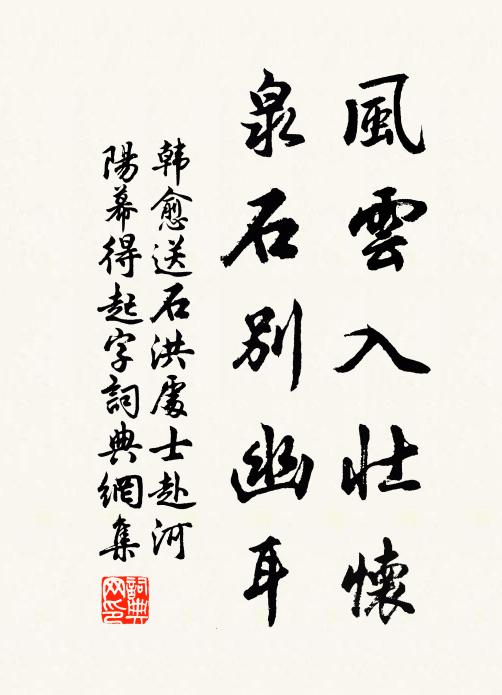 風雲入壯懷
泉石別幽耳
韩愈送石洪處士赴河
陽幕得起字詞典網集